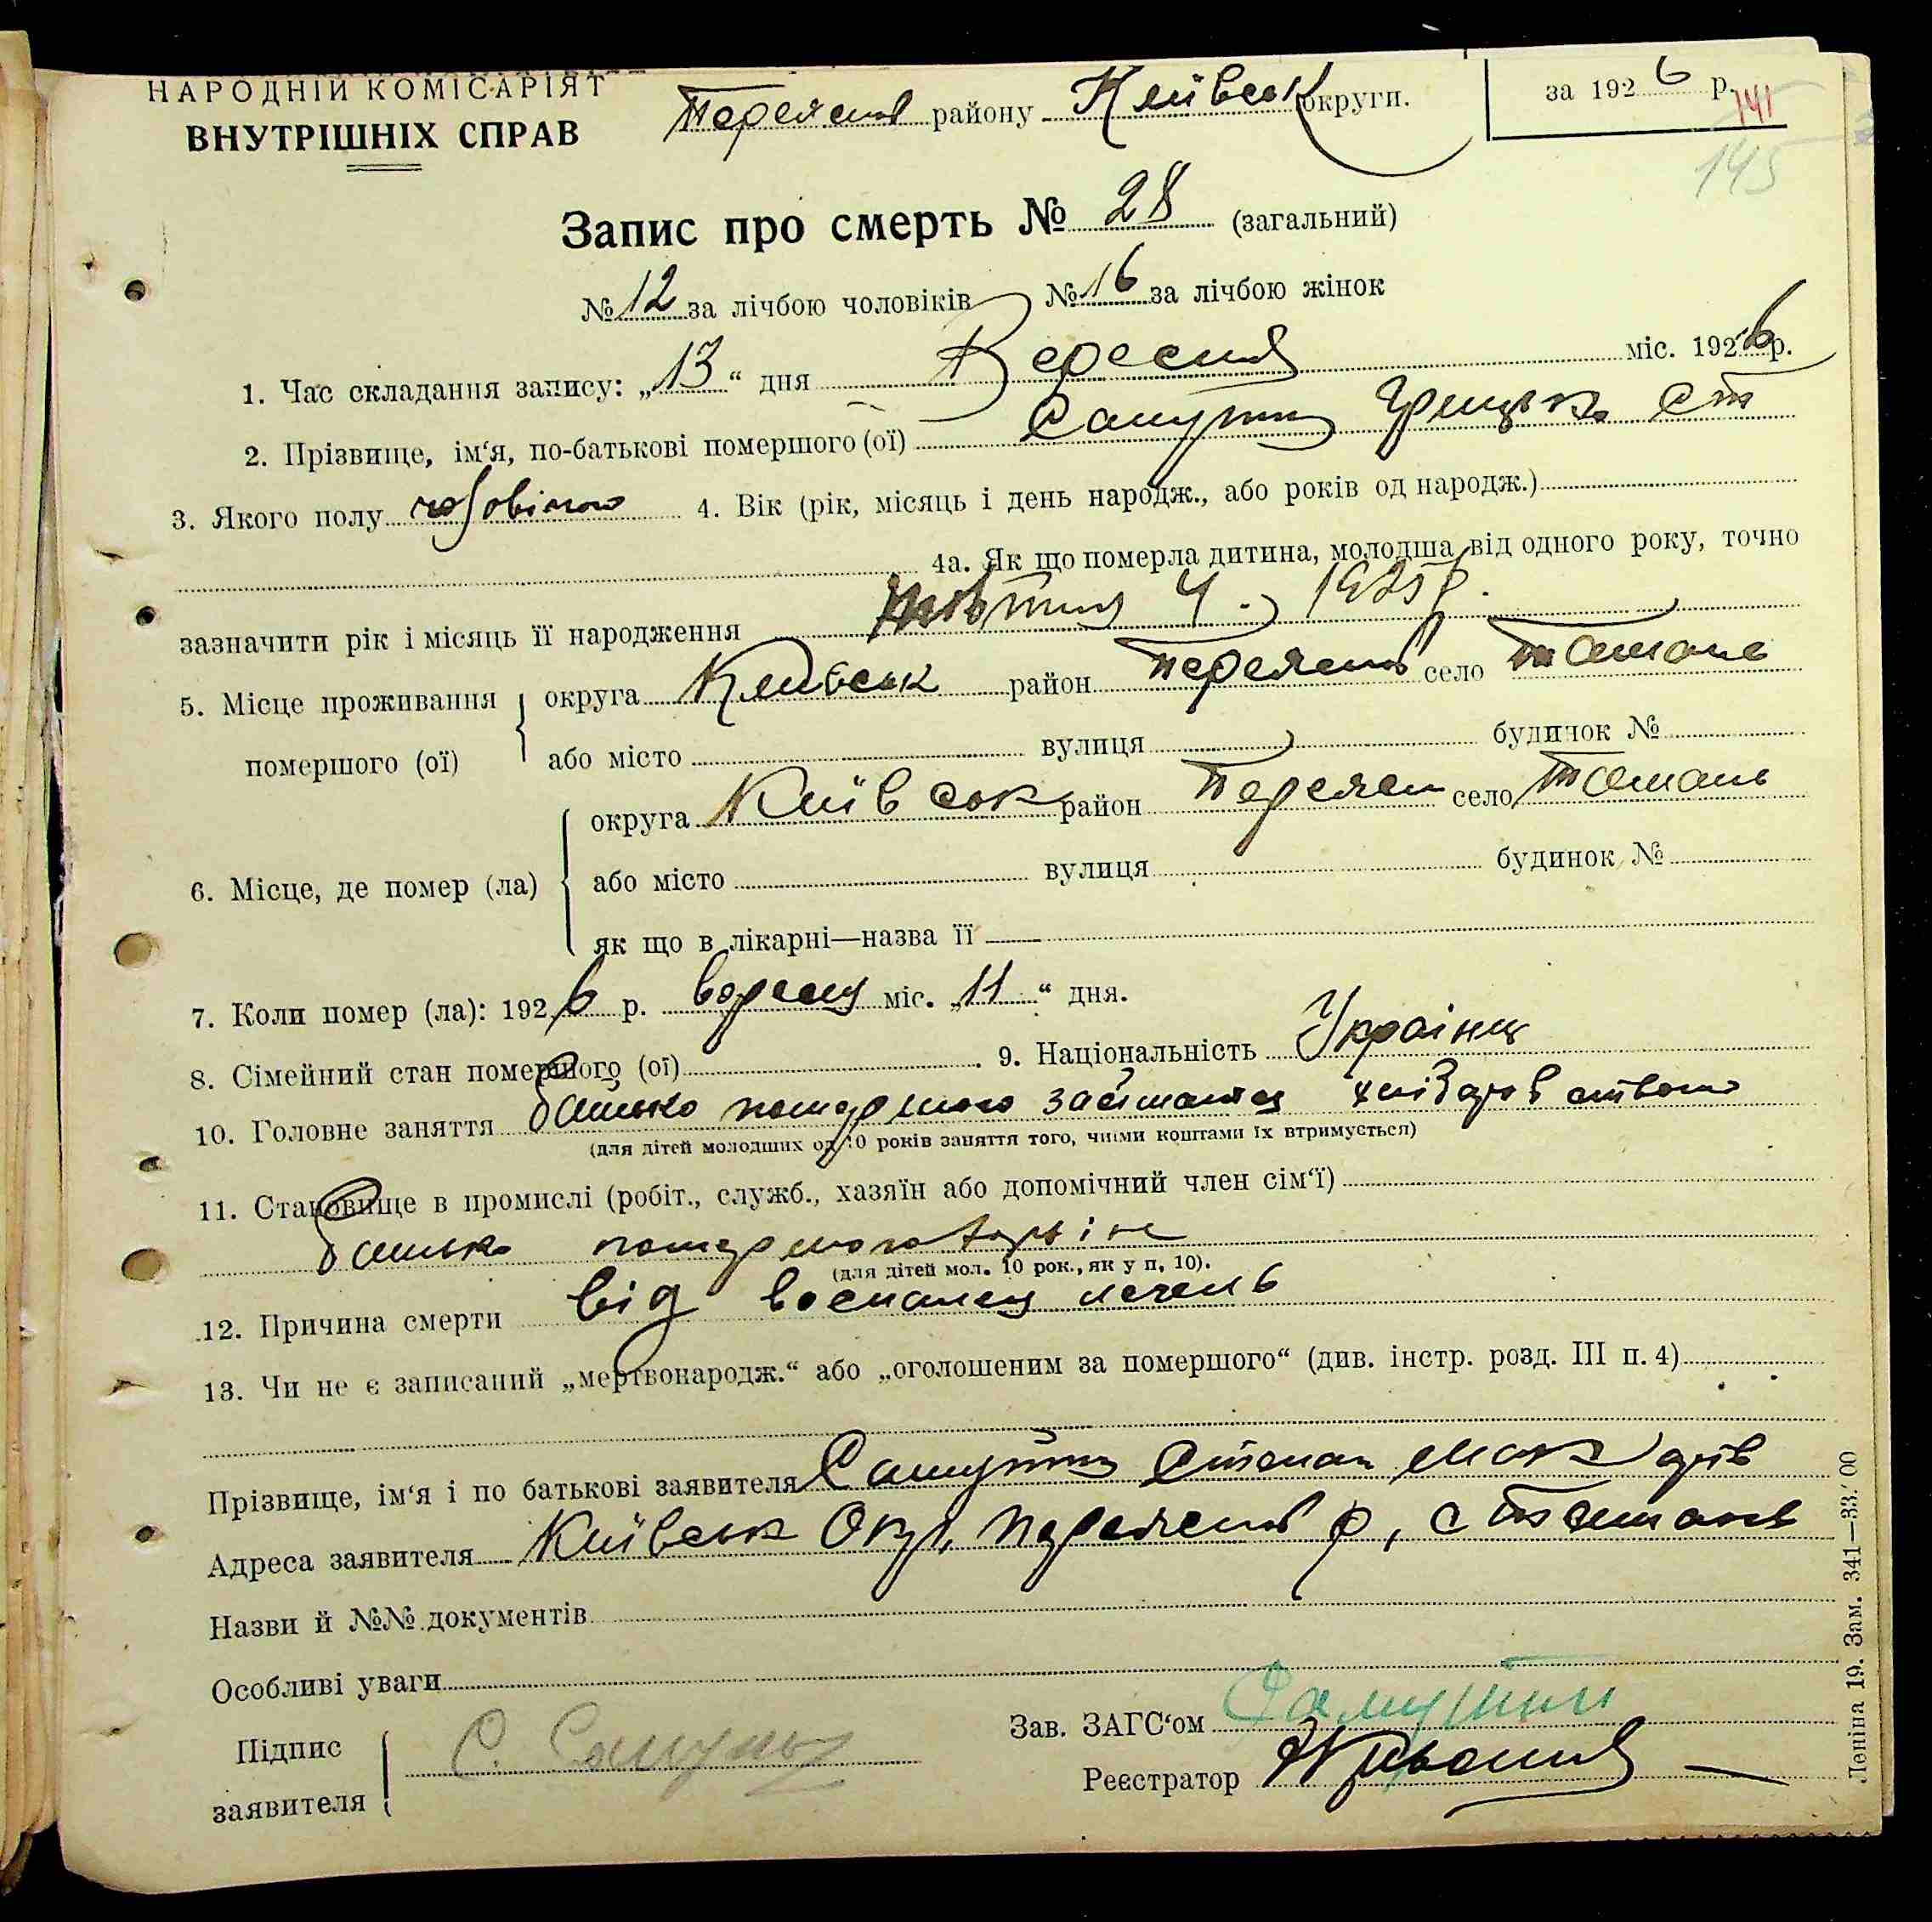 НАРОДНІЙ КОМІСАРІЯТ
ВНУТРІШНІХ СПРАВ
району Київськ округи.
за 1926 р.
141
145
Запис про смерть № 28 (загальний)
№ 12 за лічбою чоловіків № 16 за лічбою жінок
1. Час складання запису: „13“ дня Вересня міс. 1926 р.
2. Прізвище, ім‘я, по-батькові помершого (ої) Сашутин Грицько Ст
3. Якого полу 4. Вік (рік, місяць і день народж., або років од народж.)
4а. Як що померла дитина, молодша від одного року, точно
зазначити рік і місяць її народження Жовтня 4. 1925 р.
5. Місце проживання помершого (ої) округа Київськ район село Ташань
або місто вулиця будинок №
6. Місце, де помер (ла) округа Київськ район Переясл село Ташань
або місто вулиця будинок №
як що в лікарні—назва її
7. Коли помер (ла): 1926 р. вересня міс. „11“ дня.
8. Сімейний стан помершого (ої) 9. Національність Українц
10. Головне заняття батько помершого займаетця хліборобством
(для дітей молодших од 10 років заняття того, чиїми коштами їх втримується)
11. Становище в промислі (робіт., служб., хазяїн або допомічний член сім‘ї)
батько помершого
(для дітей мол. 10 рок., як у п. 10).
12. Причина смерти від
13. Чи не є записаний „мертвонародж.“ або „оголошеним за помершого“ (див. інстр. розд. III п. 4)
Прізвище, ім‘я і по батькові заявителя Степан
Адреса заявителя Київськ Окр, р, с Ташань
Назви й №№ документів
Особливі уваги
Підпис заявителя С.
Зав. ЗАГС‘ом
Реєстратор
Леніна 19. Зам. 341—33.′00